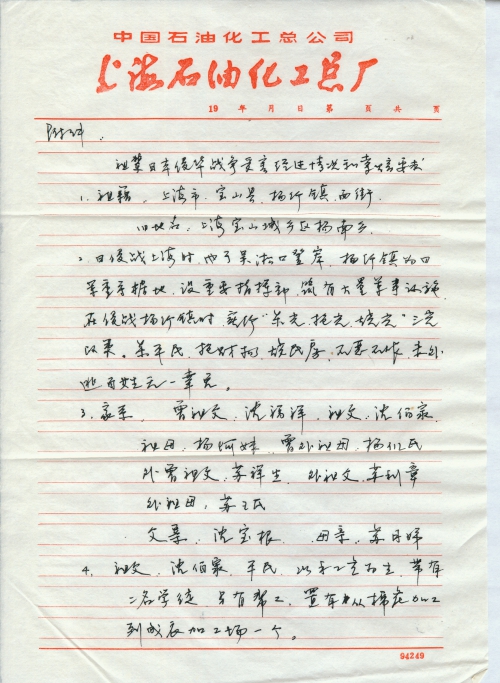 中国石油化工总公司
上海石油化工总厂
19 年 月 日 第 页 共 页
附件:
祖辈日本侵华战争受害经过情况和索赔要求
1. 祖籍, 上海市, 宝山县, 杨行镇, 西街,
旧地名: 上海宝山城乡区杨南乡.
2. 日侵战上海时, 由于吴淞口登岸, 杨行镇为日
军重要据地, 设重要指挥部, 筑有大量军事设施
在侵战杨行镇时, 实行"杀光, 抢光, 烧光"三光
政策. 杀平民, 抢财物, 烧民房, 无恶不作, 未外
逃者无一幸免。
3. 家系, 曾祖父, 沈 祥, 祖父, 沈伯泉,
祖母, 杨何妹, 曾外祖母, 杨 氏
外曾祖父, 苏祥生, 外祖父, 苏 章
外祖母, 苏王氏
父亲, 沈宝根, 母亲, 苏月娣
4. 祖父, 沈伯泉, 平民, 以手工业为生, 带有
二名学徒, 另有帮工, 置有从棉花加工
到成衣加工场一个。
94249